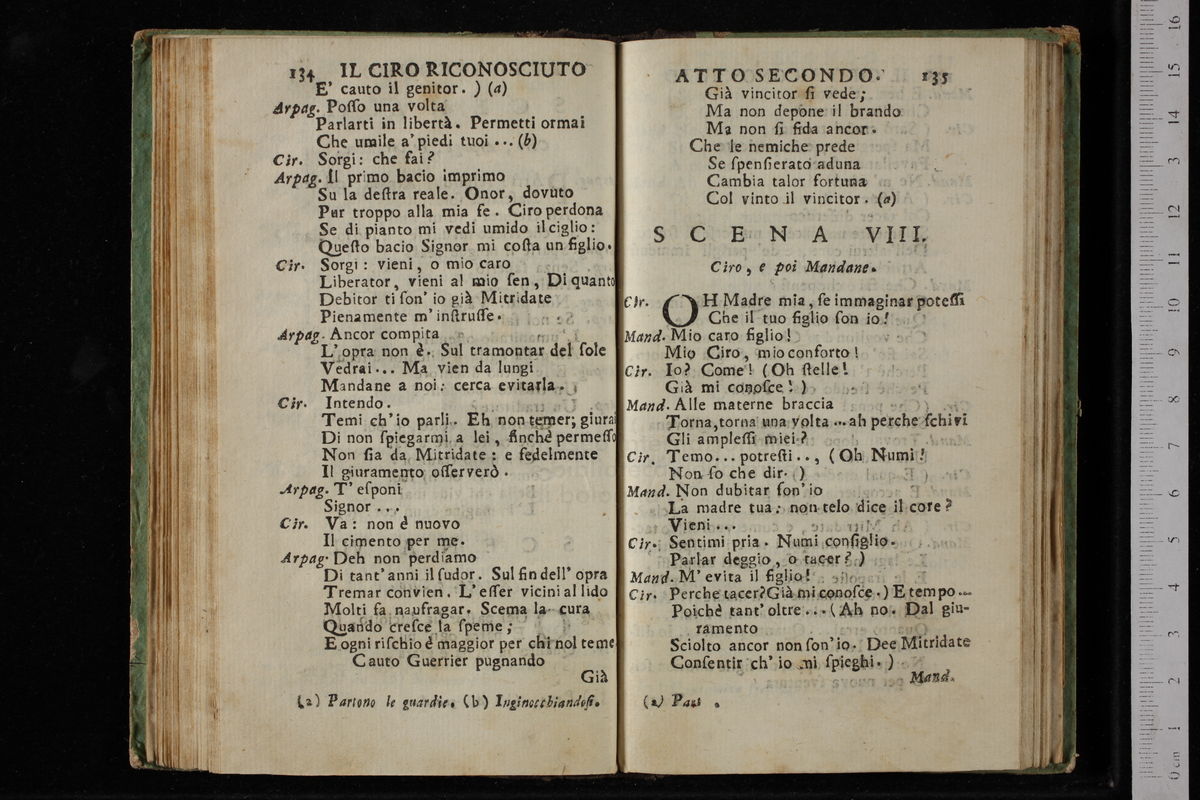 134 IL CIRO RICONOSCIUTO
E' cauto il genitor. ) (a)
Arpag. Poſſo una volta
Parlarti in libertà. Permetti ormai
Che umile a' piedi tuoi ... (b)
Cir. Sorgi: che fai?
Arpag. Il primo bacio imprimo
Su la deſtra reale. Onor, dovuto
Pur troppo alla mia fe. Ciro perdona
Se di pianto mi vedi umido il ciglio:
Queſto bacio Signor mi coſta un figlio.
Cir. Sorgi: vieni, o mio caro
Liberator, vieni al mio ſen, Di quanto
Debitor ti ſon' io già Mitridate
Pienamente m' inſtruſſe.
Arpag. Ancor compita
L' opra non è. Sul tramontar del ſole
Vedrai... Ma vien da lungi
Mandane a noi: cerca evitarla.
Cir. Intendo.
Temi ch' io parli. Eh non temer; giurai
Di non ſpiegarmi a lei, finchè permeſſo
Non ſia da Mitridate: e fedelmente
Il giuramento oſſerverò.
Arpag. T' eſponi
Signor ...
Cir. Va: non è nuovo
Il cimento per me.
Arpag. Deh non perdiamo
Di tant' anni il ſudor. Sul fin dell' opra
Tremar convien. L' eſſer vicini al lido
Molti fa naufragar. Scema la cura
Quando creſce la ſpeme;
E ogni riſchio è maggior per chi nol teme
Cauto Guerrier pugnando
Già
(a) Partono le guardie. (b) Inginocchiandoſi.
ATTO SECONDO. 135
Già vincitor ſi vede;
Ma non depone il brando
Ma non ſi fida ancor.
Che le nemiche prede
Se ſpenſierato aduna
Cambia talor fortuna
Col vinto il vincitor. (a)
SCENA VIII.
Ciro, e poi Mandane.
Cir. OH Madre mia, ſe immaginar poteſſi
Che il tuo figlio ſon io!
Mand. Mio caro figlio!
Mio Ciro, mio conforto!
Cir. Io? Come! (Oh ſtelle!
Già mi conoſce! )
Mand. Alle materne braccia
Torna, torna una volta ... ah perche ſchivi
Gli ampleſſi miei?
Cir. Temo... potreſti .., (Oh Numi!
Non ſo che dir. )
Mand. Non dubitar ſon' io
La madre tua: non telo dice il core?
Vieni ...
Cir. Sentimi pria. Numi conſiglio.
Parlar deggio, o tacer? )
Mand. M' evita il figlio!
Cir. Perche tacer? Già mi conoſce. ) E tempo ...
Poichè tant' oltre ... (Ah no. Dal giu-
ramento
Sciolto ancor non ſon' io. Dee Mitridate
Conſentir ch' io mi ſpieghi. )
Mand.
(a)